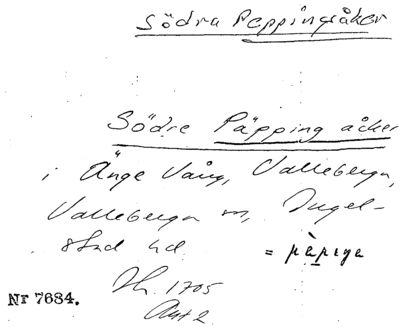 Södra Peppingsåker
Södre Päpping åcker
i Änge Vång, Valleberga,
Valleberga sn, Ingel-
stad hd
= pàpiga
Lh. 1705
Akt 2
Nr 7684.